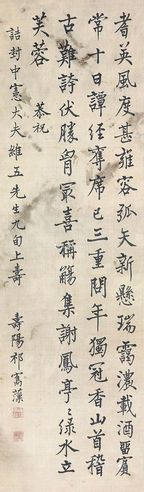 耆英風度甚雍容弧矢新懸瑞靄濃載酒畱賓
常十日譚經奪席已三重閏年獨冠香山首稽
古難誇伏勝胷冣喜稱觴集謝鳳亭〻綠水立
芙蓉 恭祝
誥封中憲大夫維五先生九旬上壽 壽陽祁寯藻